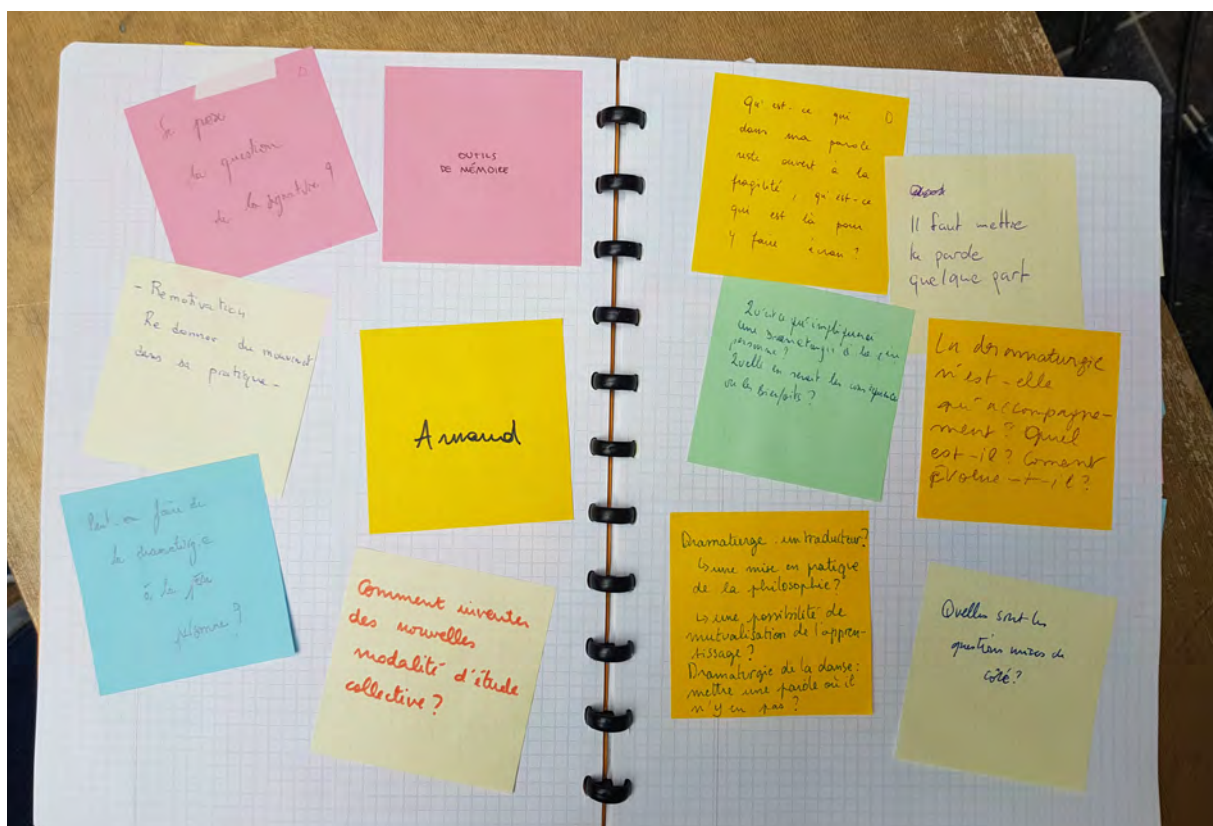 Se pose
la question
de la signature ?
OUTILS
DE MÉMOIRE
- Remotivation
Re donner du mouvement
dans sa pratique -
Arnaud
Peut-on faire de
la dramaturgie
à la 1ère
personne ?
Comment inventer
des nouvelles
modalité d'étude
collective ?
Qu'est-ce qui
dans ma parole
reste ouvert à la
fragilité, qu'est-ce
qui est là pour
y faire écran ?
Il faut mettre
la parole
quelque part
Qu'est-ce qu'impliquerai
une Dramaturgie à la 1ère
personne ?
Quelle en serait les conséquences
ou les bienfaits ?
La dramaturgie
n'est-elle
qu'accompagne-
ment ? Quel
est-il ? Coment
évolue-t-il ?
Dramaturge : un traducteur ?
↳ une mise en pratique
de la philosophie ?
↳ une possibilité de
mutualisation de l'appren-
tissage ?
Dramaturgie de la danse :
mettre une parole où il
n'y en pas ?
Quelles sont les
question mises de
côté ?